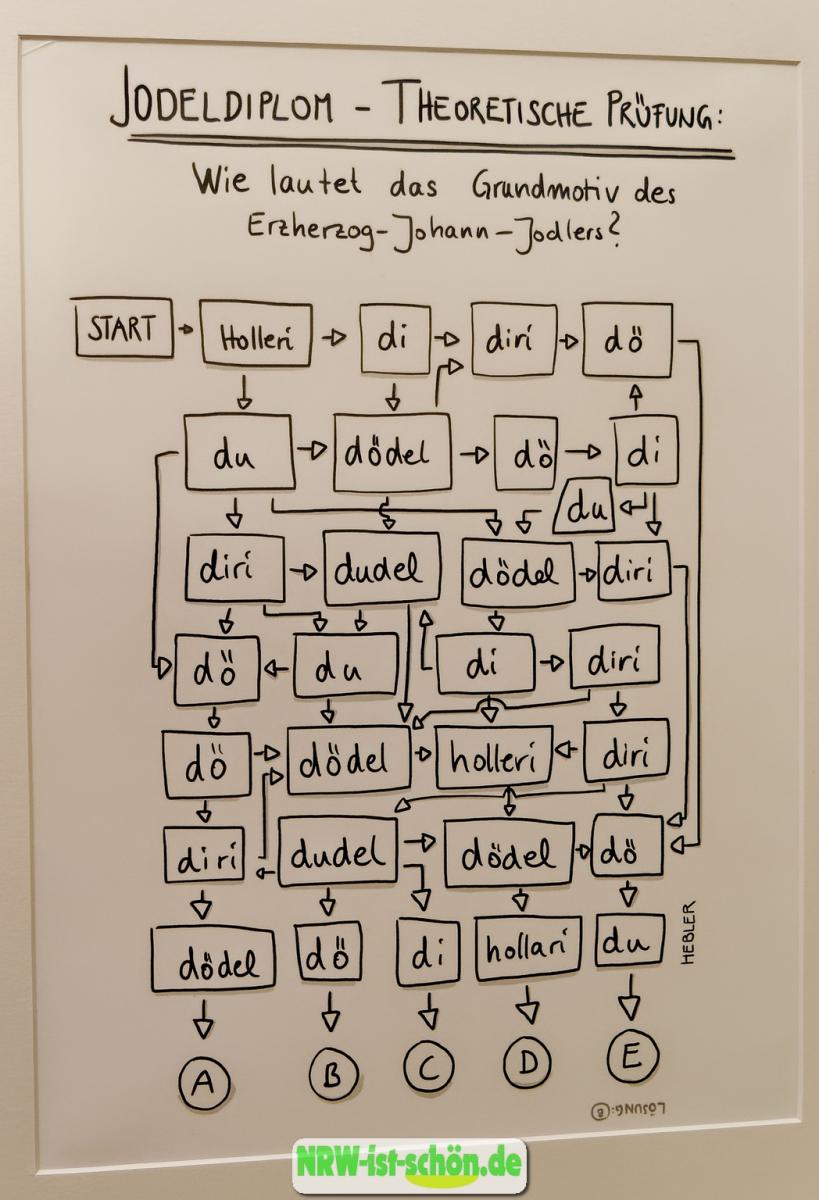 JODELDIPLOM - THEORETISCHE PRÜFUNG:
Wie lautet das Grundmotiv des
Erzherzog-Johann-Jodlers?
START Holleri di diri dö
du dödel dö di
du
diri dudel dödel diri
dö du di diri
dö dödel holleri diri
diri dudel dödel dö
dödel dö di hollari du
HEBLER
A B C D E
LÖSUNG: B
NRW-ist-schön.de